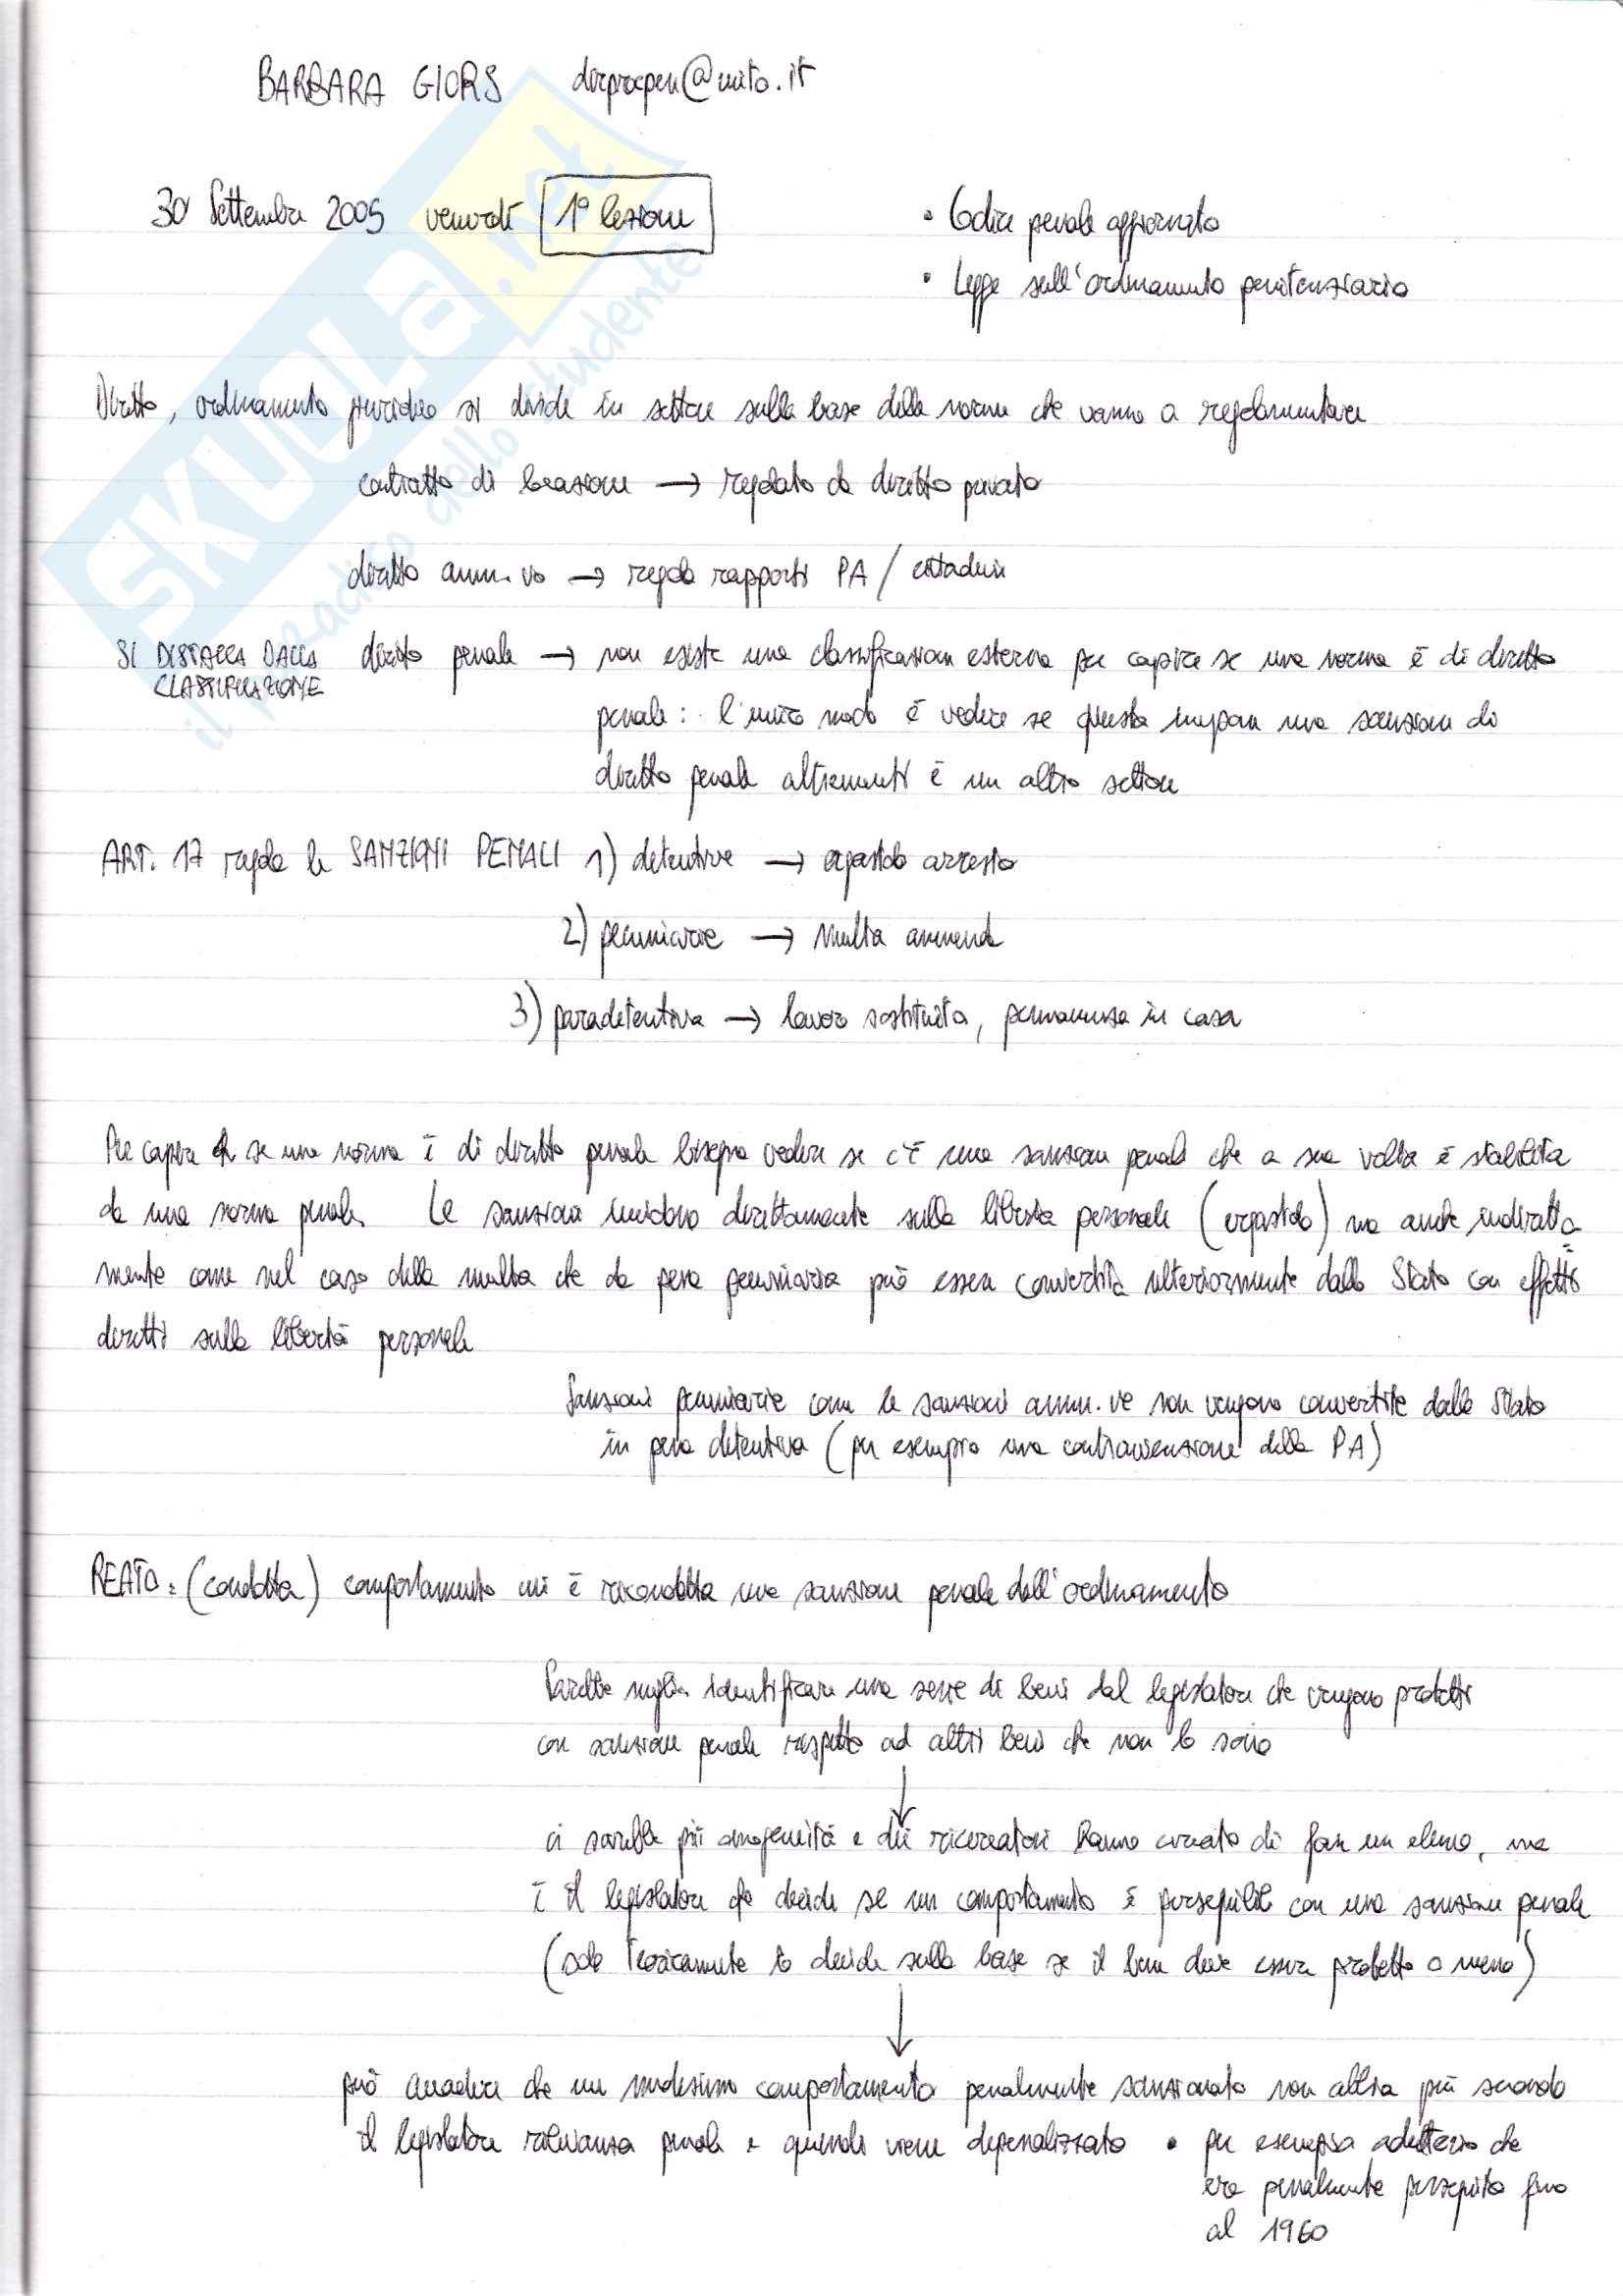 BARBARA GIORS dirprocpen@unito.it
30 Settembre 2005 venerdì 1° lezione
• Codice penale aggiornato
• Legge sull'ordinamento penitenziario
SKUOLA.net
il paradiso dello studente
Diritto, ordinamento giuridico si divide in settori sulla base delle norme che vanno a regolamentare
contratto di locazione → regolato da diritto privato
diritto amm.vo → regola rapporti PA / cittadini
SI DISTACCA DALLA CLASSIFICAZIONE
diritto penale → non esiste una classificazione esterna per capire se una norma è di diritto
penale: l'unico modo è vedere se questa impone una sanzione di
diritto penale altrimenti è un altro settore
ART. 17 regola le SANZIONI PENALI 1) detentive → ergastolo arresto
2) pecuniarie → multa ammenda
3) paradetentiva → lavoro sostitutivo, permanenza in casa
Per capire se una norma è di diritto penale bisogna vedere se c'è una sanzione penale che a sua volta è stabilita
da una norma penale. Le sanzioni incidono direttamente sulla libertà personale (ergastolo) ma anche indiretta=
mente come nel caso della multa che da pena pecuniaria può essere convertita ulteriormente dallo Stato con effetti
diretti sulla libertà personale
Sanzioni pecuniarie come le sanzioni amm.ve non vengono convertite dallo Stato
in pena detentiva (per esempio una contravvenzione della PA)
REATO: (condotta) comportamento cui è ricondotta una sanzione penale dall'ordinamento
Sarebbe meglio identificare una serie di beni dal legislatore che vengono protetti
con sanzione penale rispetto ad altri beni che non lo sono
ci sarebbe più omogeneità e dei ricercatori hanno cercato di fare un elenco, ma
è il legislatore che decide se un comportamento è perseguibile con una sanzione penale
(solo teoricamente lo decide sulla base se il bene deve essere protetto o meno)
può accadere che un medesimo comportamento penalmente sanzionato non abbia più secondo
il legislatore rilevanza penale e quindi viene depenalizzato • per esempio adulterio che
era penalmente perseguito fino
al 1960